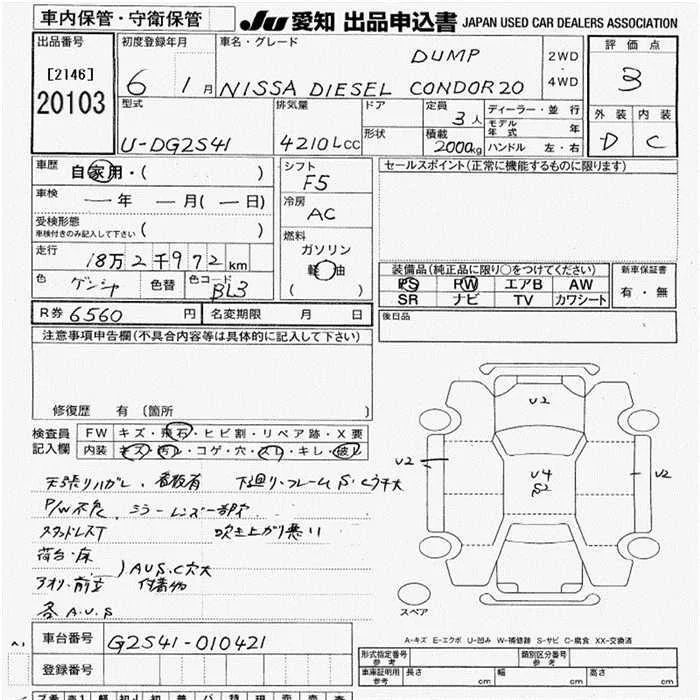 車内保管・守衛保管
JU 愛知 出品申込書 JAPAN USED CAR DEALERS ASSOCIATION
出品番号 初度登録年月 車名・グレード 評価点
[2146] 20103
6 1月 NISSA DIESEL CONDOR20 DUMP 2WD・4WD 3
型式 排気量 ドア 定員 3人 ディーラー・並行 外装 内装
形状 積載 2000kg モデル年式 年
U-DG2S41 4210Lcc ハンドル 左・右 D C
車歴 自家用・( ) シフト F5 セールスポイント(正常に機能するものに限ります)
車検 ―年 ―月(―日) 冷房 AC
受検形態
車検付きのみ記入して下さい ( )
燃料
ガソリン
軽油
( )
走行 18万2千972km
色 ゲンシャ 色替 色コード BL3
装備品(純正品に限り○をつけてください) 新車保証書
PS PW エアB AW 有・無
SR ナビ TV カワシート
R券 6560 円 名変期限 月 日 後日品
注意事項申告欄(不具合内容等は具体的に記入して下さい)
修復歴 有 (箇所 )
検査員記入欄 FW キズ・飛石・ヒビ割・リペア跡・X要
内装 キズ・汚レ・コゲ・穴・スレ・キレ・破レ
天張りハガレ、看板有 下廻り・フレームS・C穴大
P/W不良、ミラーレンズ一部欠
スタッドレスT 吹き上がり悪い
荷台・床
アオリ・前立
)AUS.C穴大
各A.U.S
U2
U2
U4
S2
U2
スペア
A-キズ E-エクボ U-凹み W-補修跡 S-サビ C-腐食 XX-交換済
車台番号 G2S41-010421
登録番号
形式指定番号 参考 類別区分番号 参考
車庫証明用 参考 長さ cm 幅 cm 高さ cm